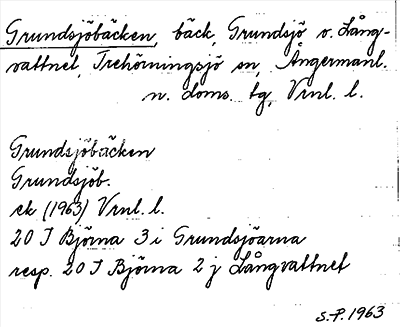 Grundsjöbäcken, bäck, Grundsjö o. Lång-
vattnet, Trehörningsjö sn, Ångermanl.
n. doms. tg, Vrnl. l.
Grundsjöbäcken
Grundsjöb.
ek (1963) Vrnl. l.
20 I Björna 3 i Grundsjöarna
resp. 20 I Björna 2 j Långvattnet
S.P. 1963